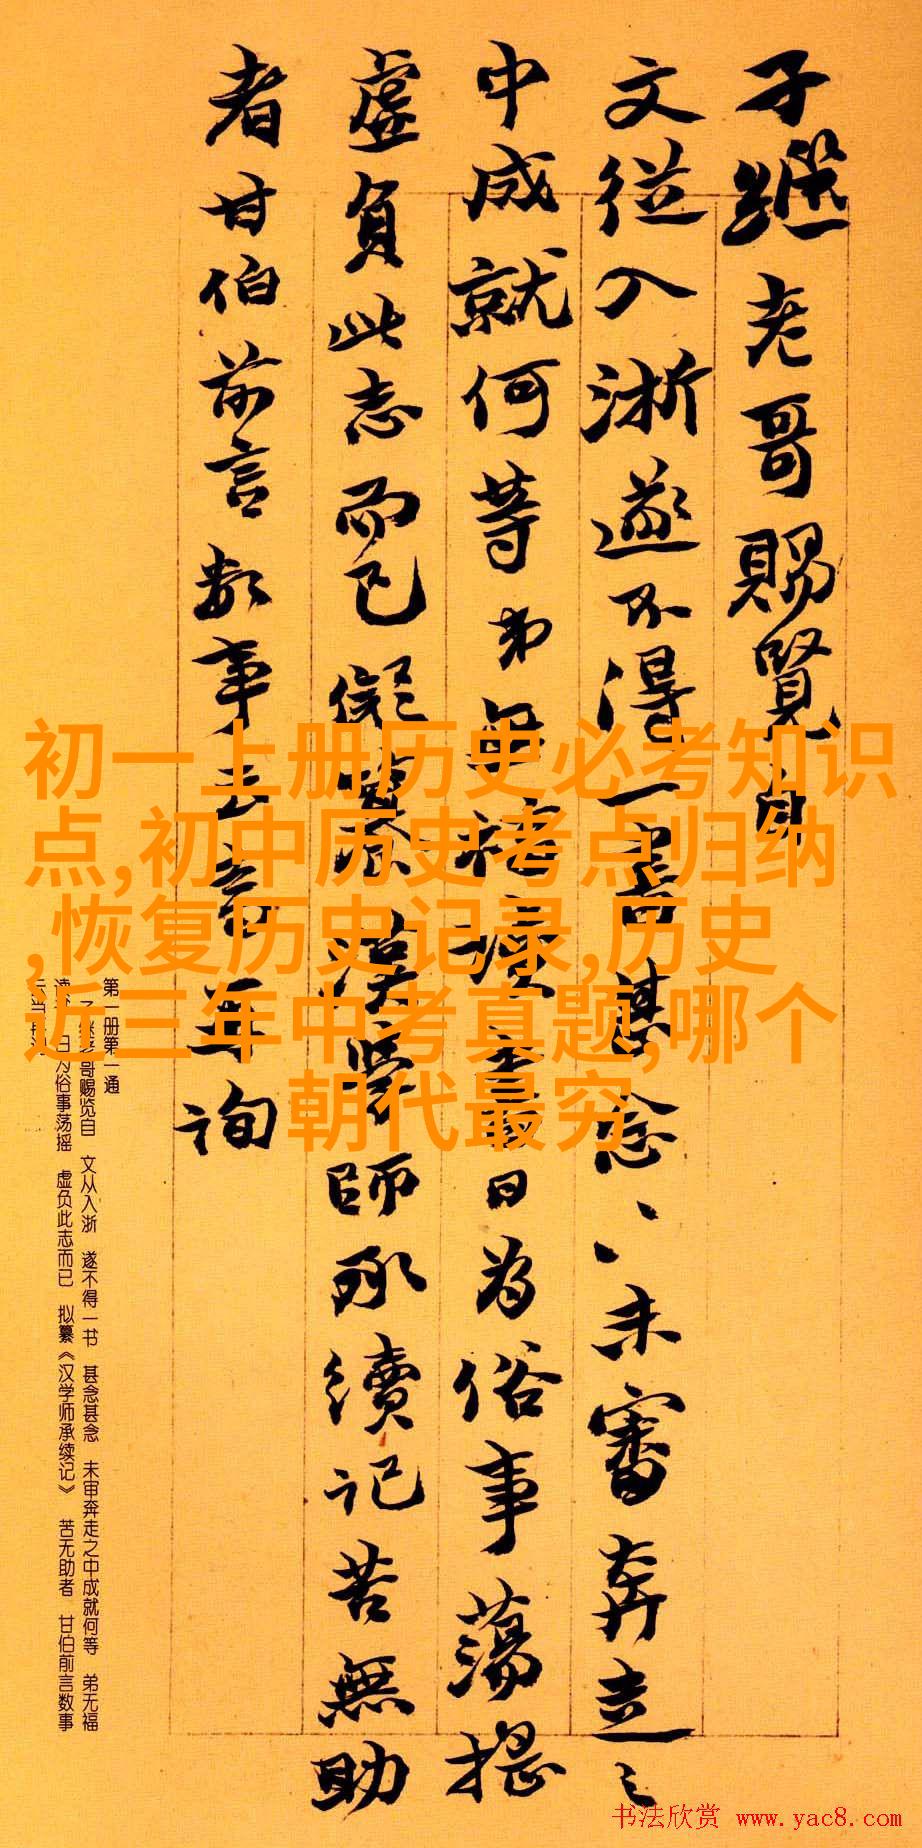 子繼老哥賜覽自
文從入浙遂不得一書甚念〻未審奔走之
中成就何等弟無福讀書日為俗事蕩搖
虛負此志而已擬纂漢學師承續記苦無助
者甘伯前言數事云當再詢
初一上册历史必考知识
点,初中历史考点归纳
,恢复历史记录,历史
近三年中考真题,哪个
朝代最穷
第一册第一通
子继老哥赐览自 文从入浙 遂不得一书 甚念甚念 未审奔走之中成就何等 弟无福
读 日为俗事荡摇 虚负此志而已 拟纂《汉学师承续记》 苦无助者 甘伯前言数事
云当再询
书法欣赏 www.yac8.com